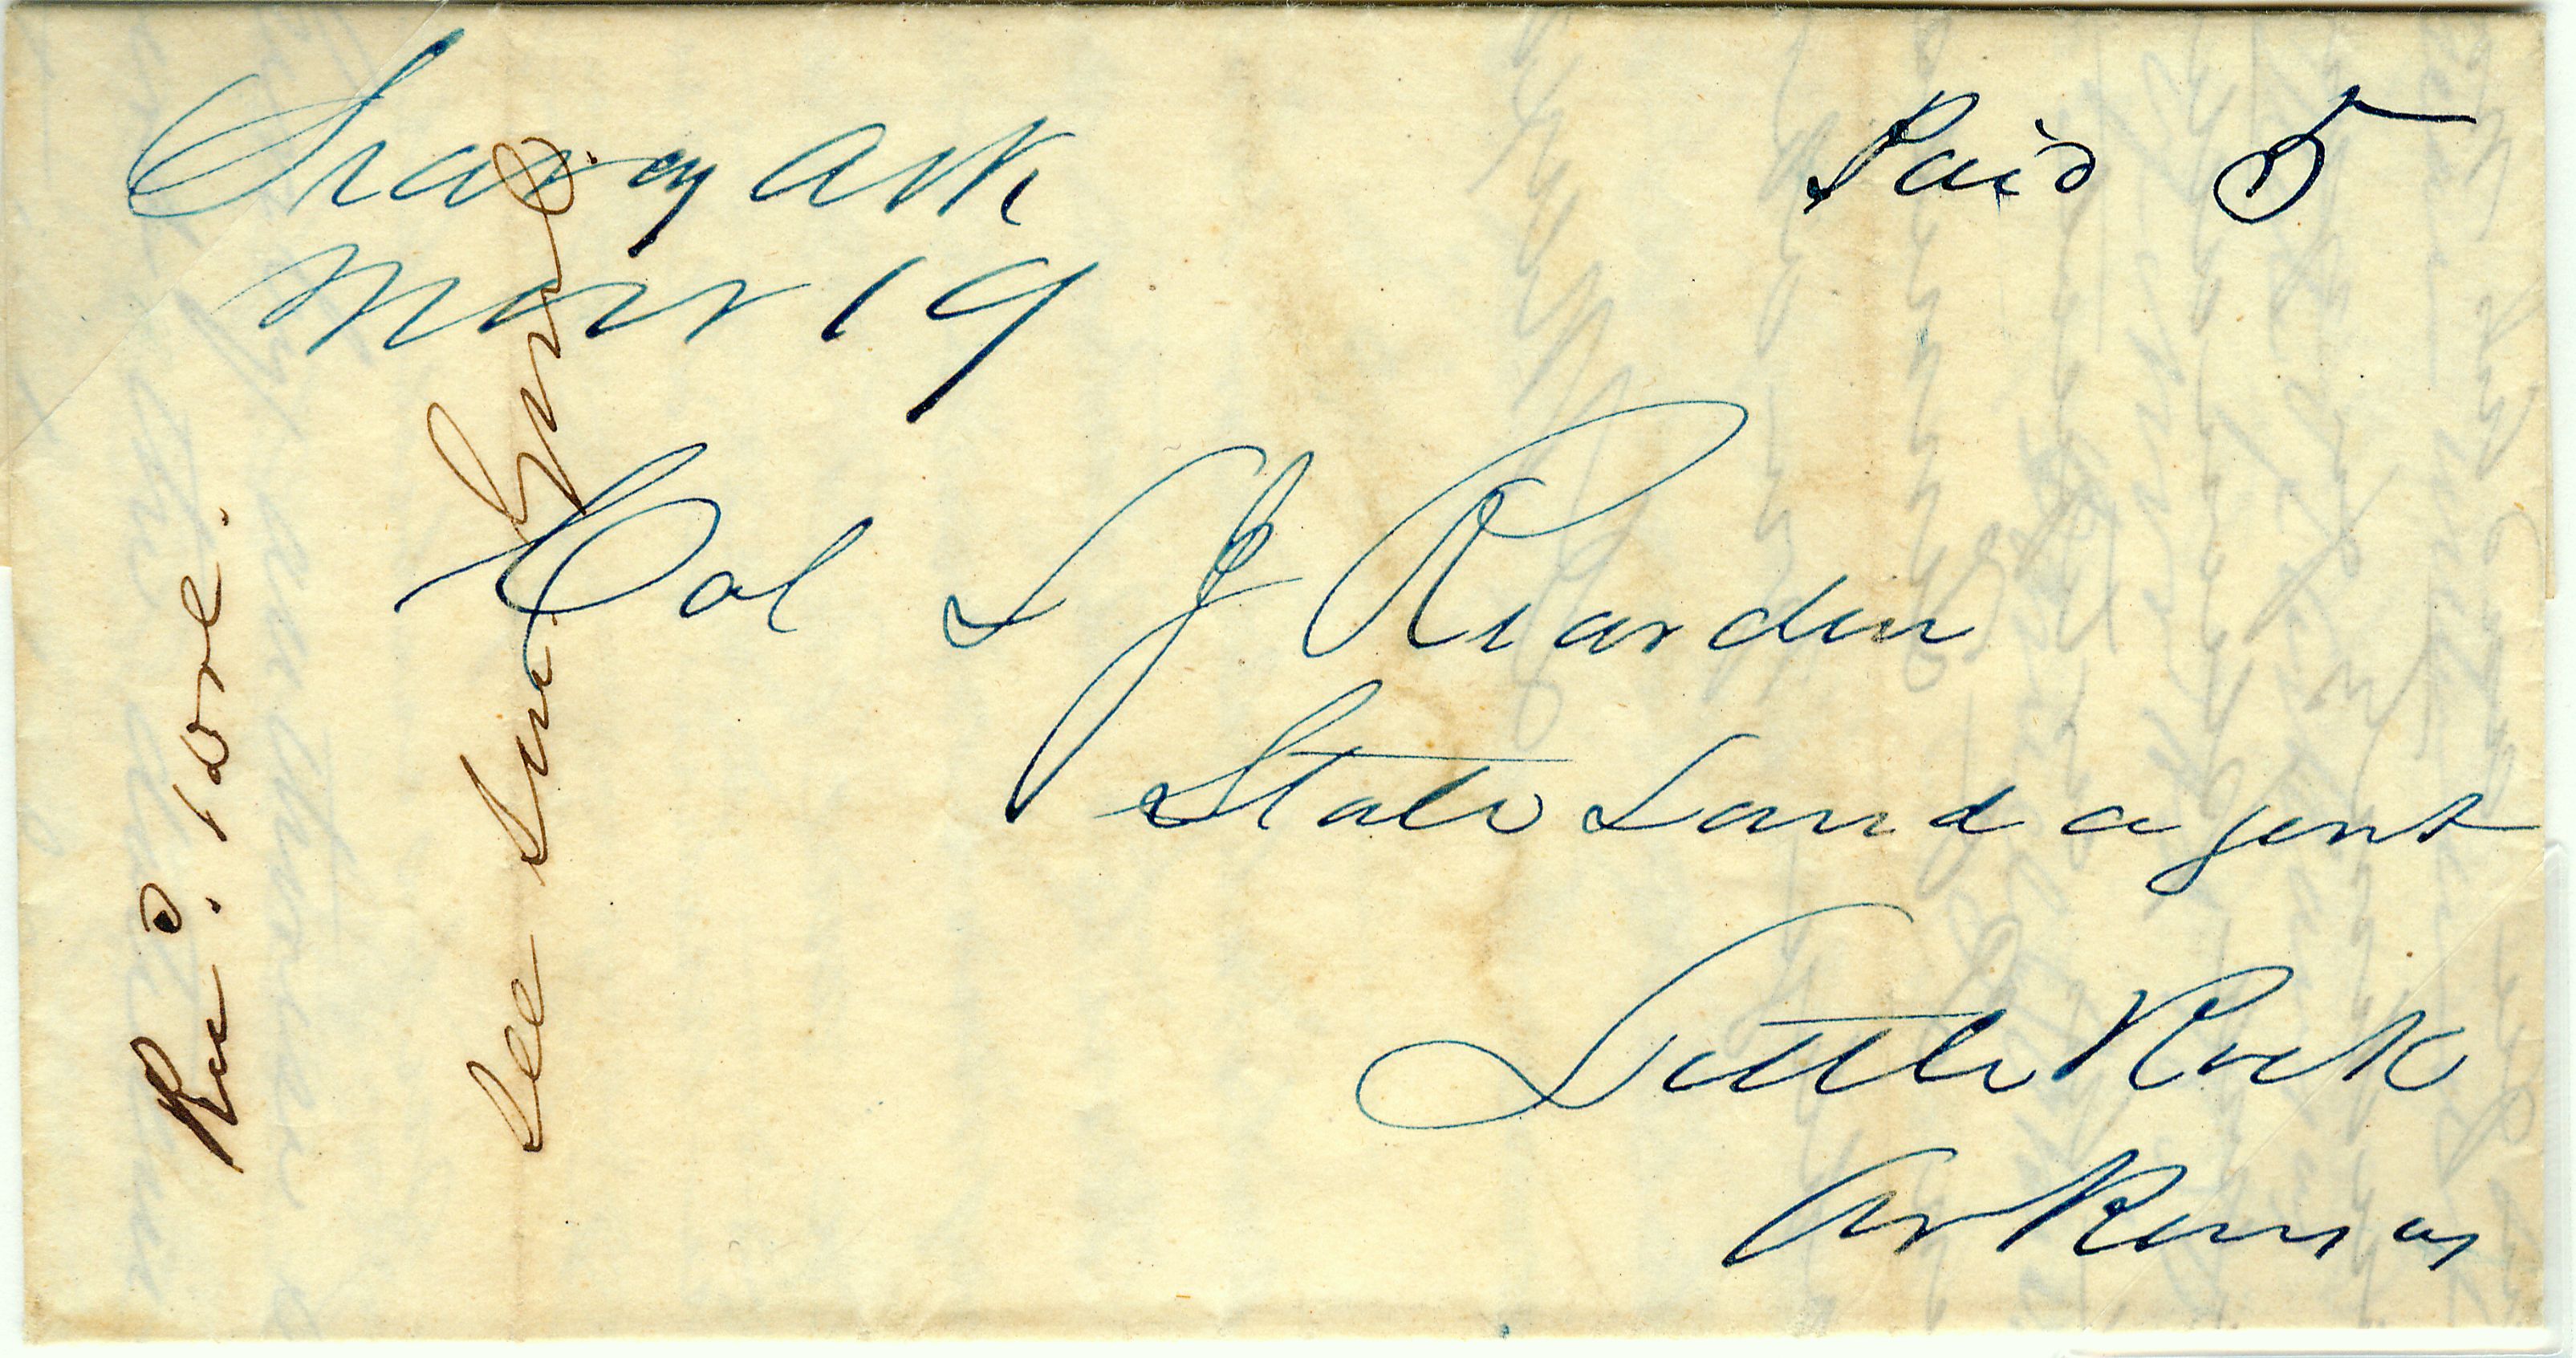 Searcy Ark
Mar 19
Paid 5
Col L J Rearden
State Land agent
Little Rock
Arkansas
Recd.
See